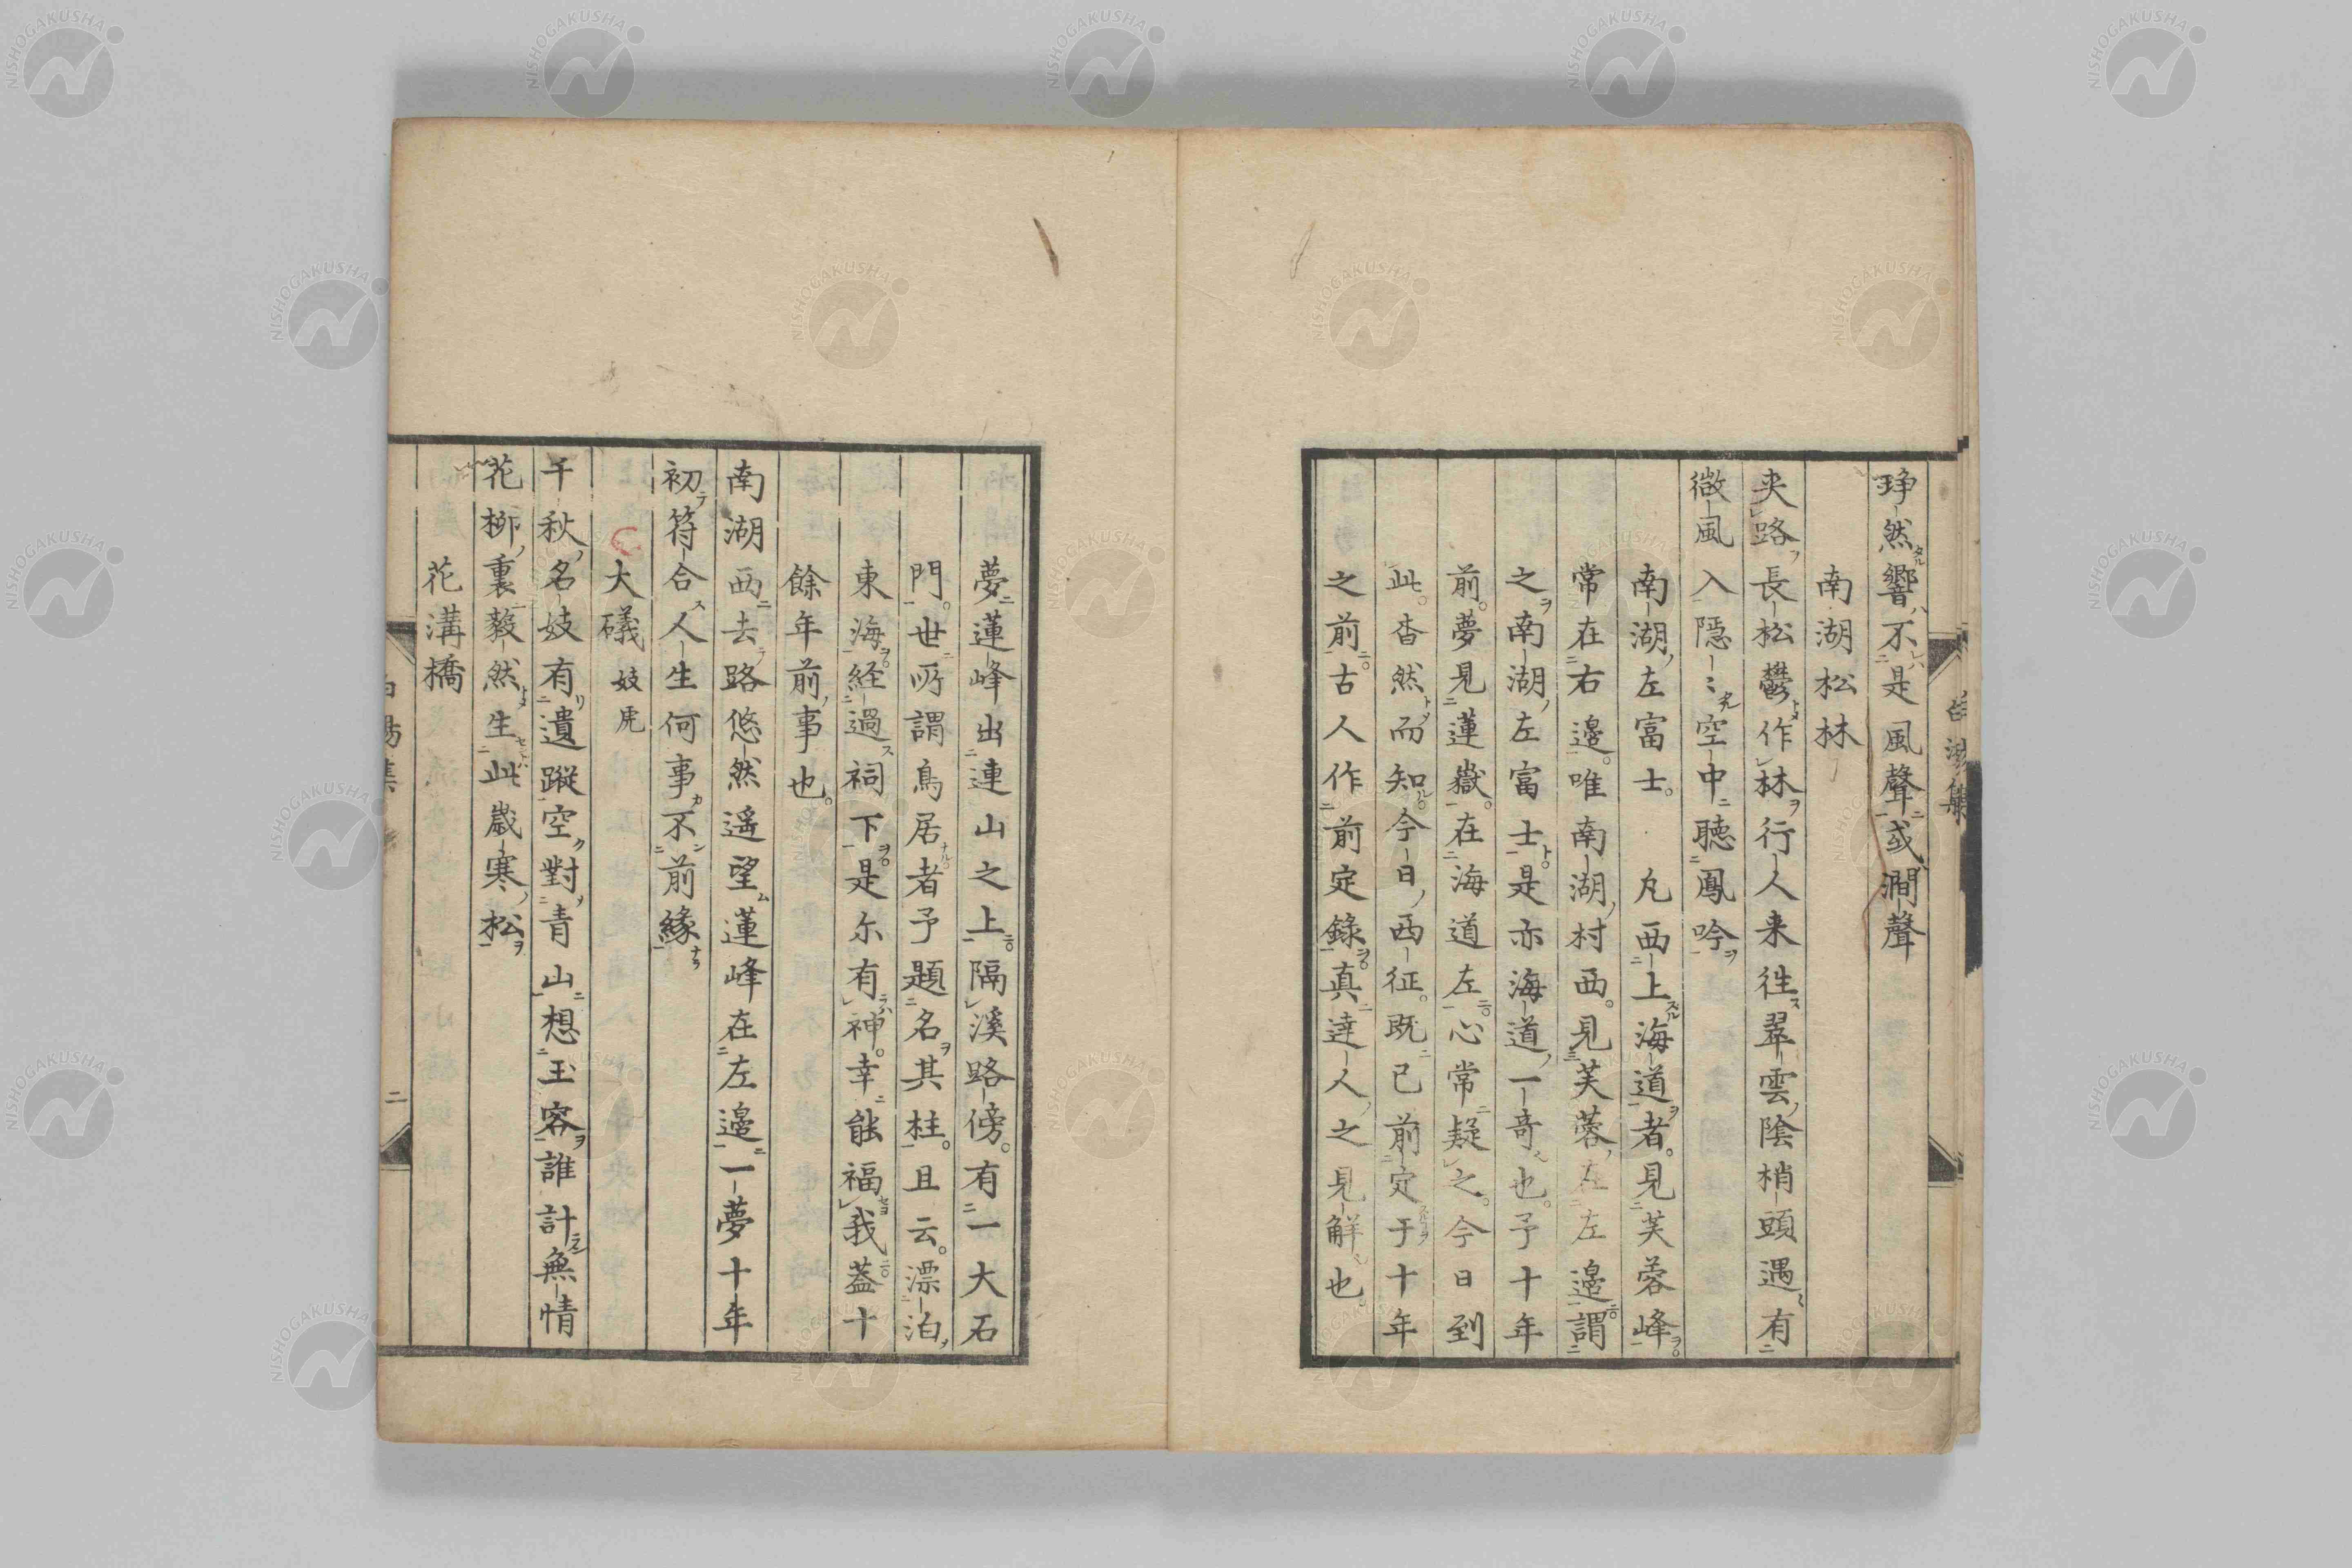 琤然響不是風聲或澗聲
南湖松林
夾路長松鬱作林行人来徃翠雲陰梢頭遇有
微風入隠〻空中聴鳳吟
南湖左富士。凡西上海道者。見芙蓉峰
常在右邊。唯南湖村西。見芙蓉在左邊謂
之南湖左富士是亦海道一竒也。予十年
前。夢見蓮嶽。在海道左心常疑之。今日到
此。杳然而知今日西征。既已前定于十年
之前。古人作前定錄真達人之見解也
夢蓮峰出連山之上隔溪路傍。有一大石
門。世所謂鳥居者予題名其柱。且云。漂泊
東海経過祠下是尓有神。幸能福我蓋十
餘年前事也。
南湖西去路悠然遥望蓮峰在左邊一夢十年
初符合人生何事不前縁
大礒 妓虎
千秋名妓有遺蹤空對青山想玉容誰計無情
花柳裏毅然生此歳寒松
花溝橋
二
NISHOGAKUSHA